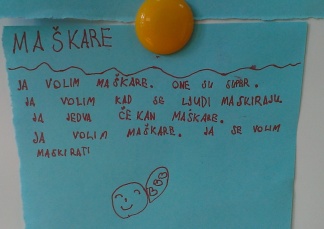 MAŠKARE
JA VOLIM MAŠKARE. ONE SU SUPER.
JA VOLIM KAD SE LJUDI MASKIRAJU.
JA JEDVA ČEKAN MAŠKARE.
JA VOLIM MAŠKARE. JA SE VOLIM
MASKIRATI